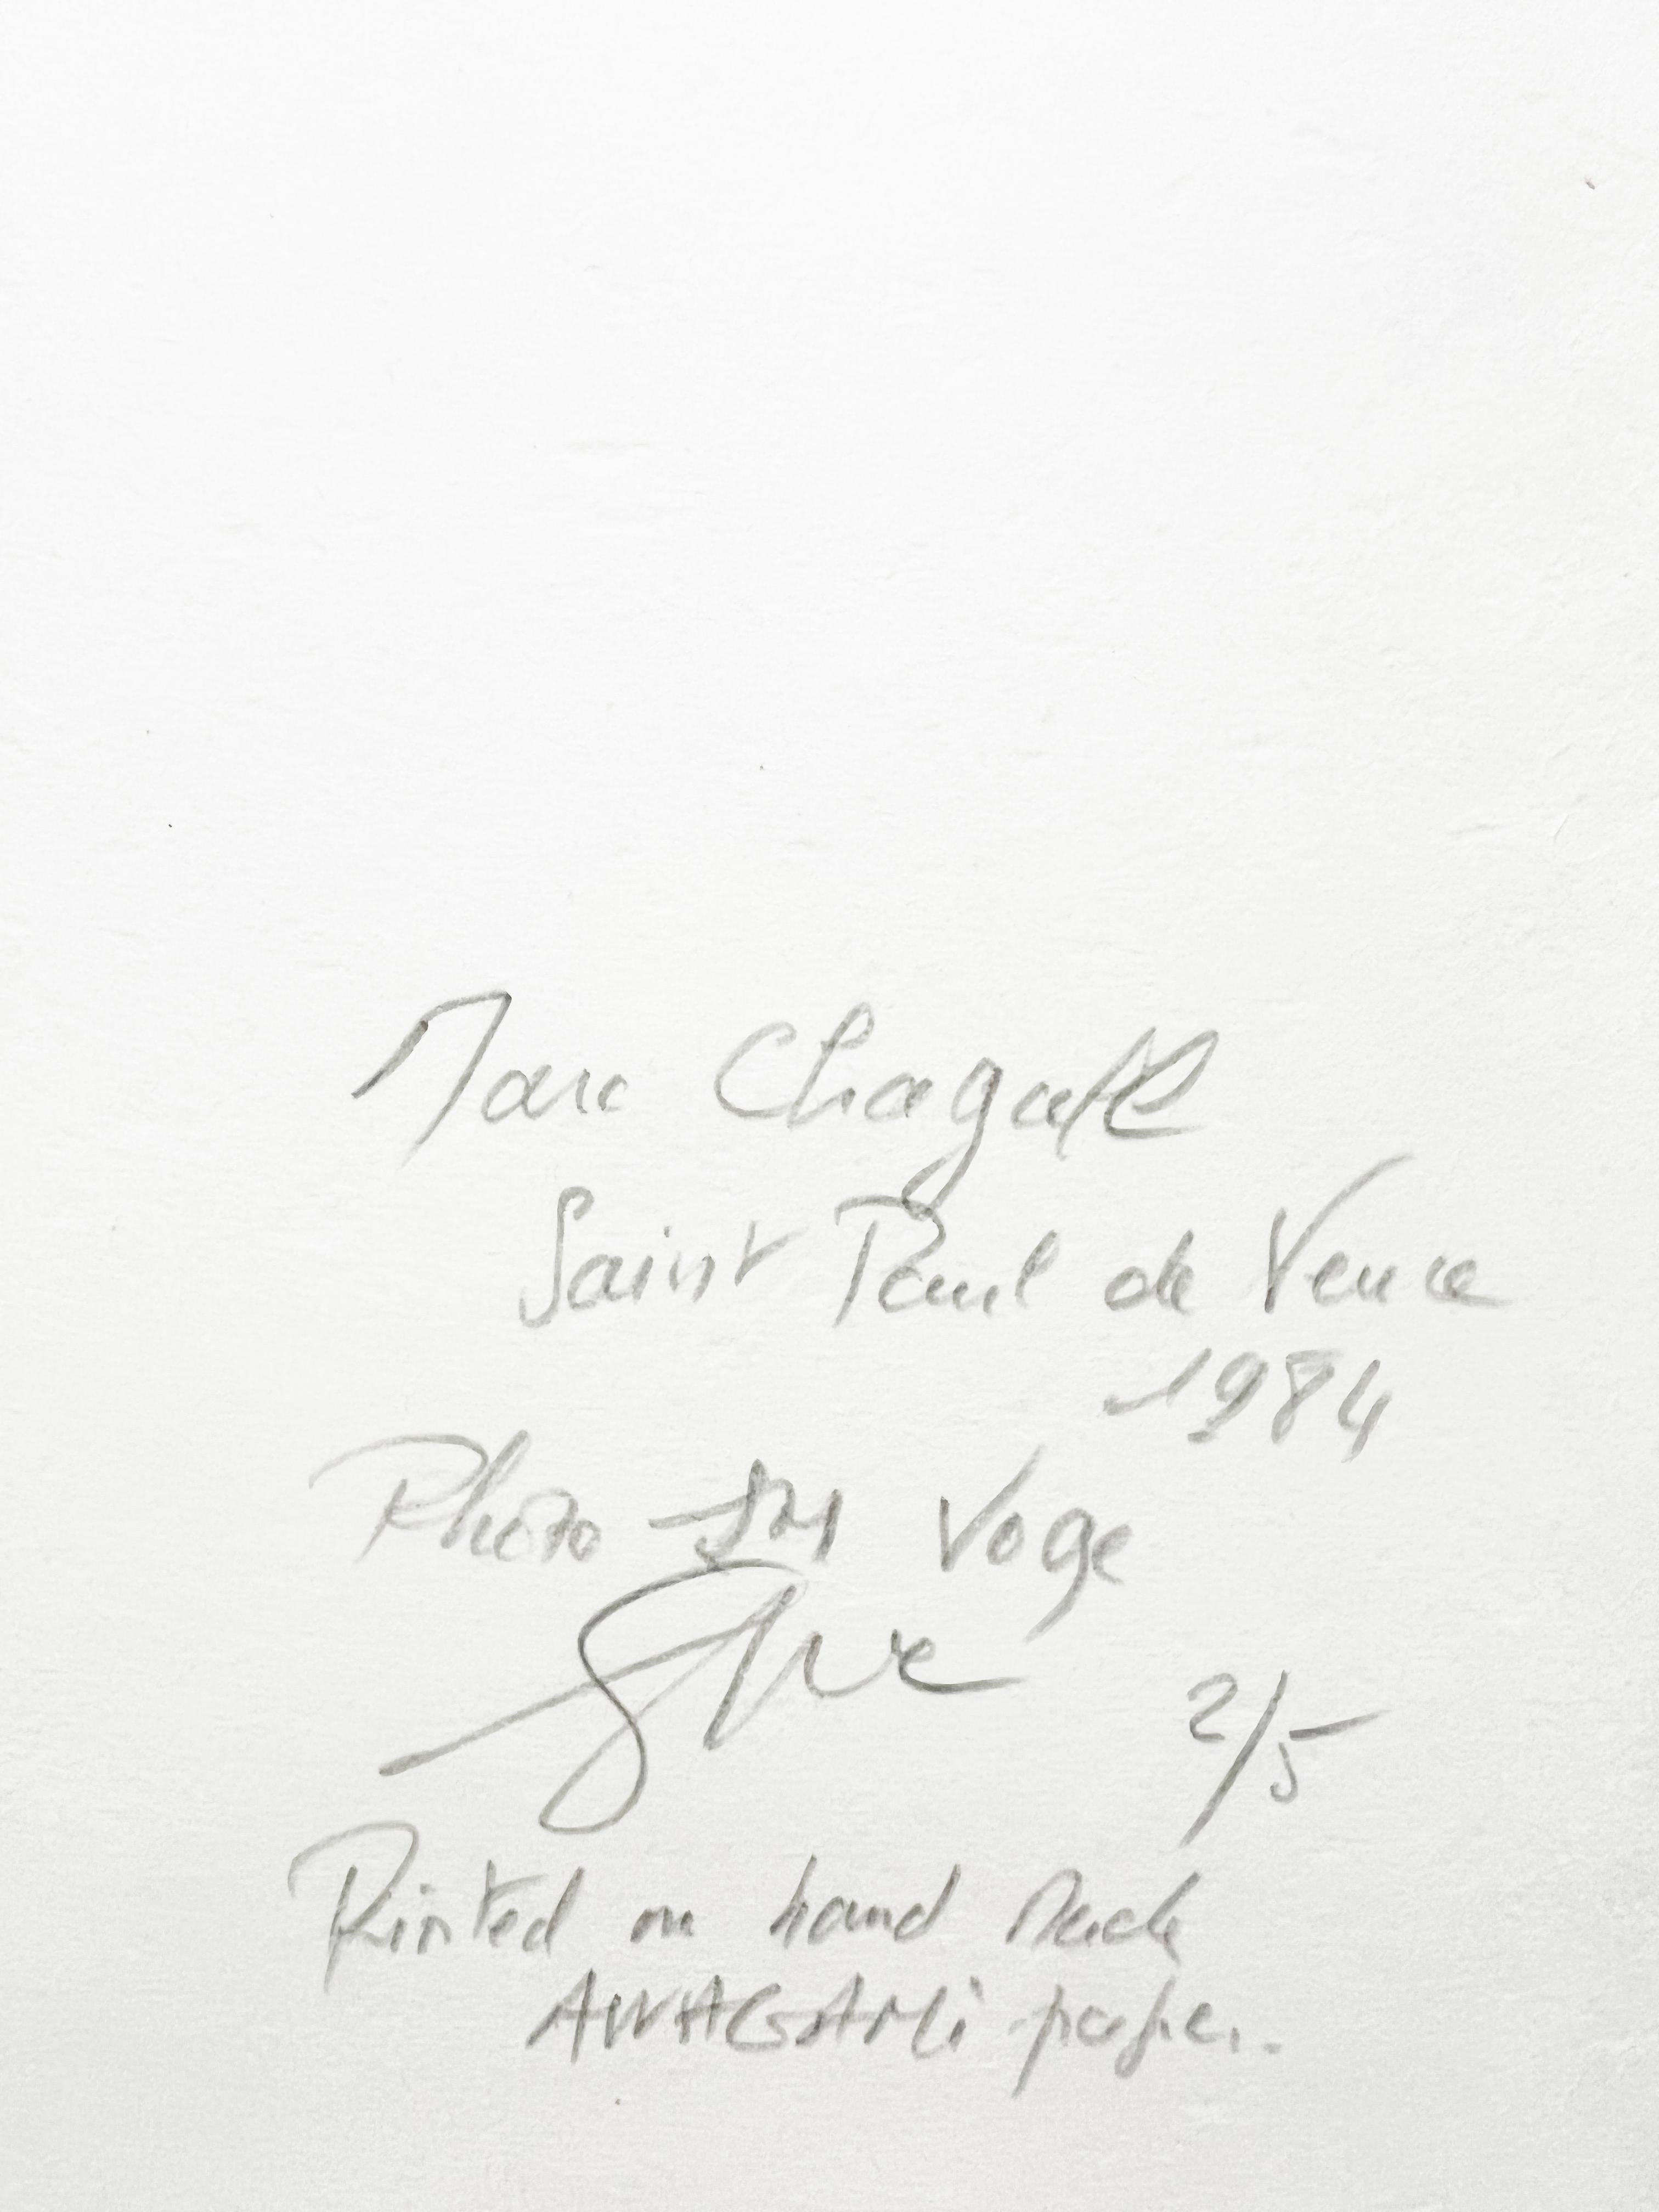 Marc Chagall
Saint Paul de Vence
1984
Photo JM Voge
2/5
Printed on hand Made
AWAGAMi paper.